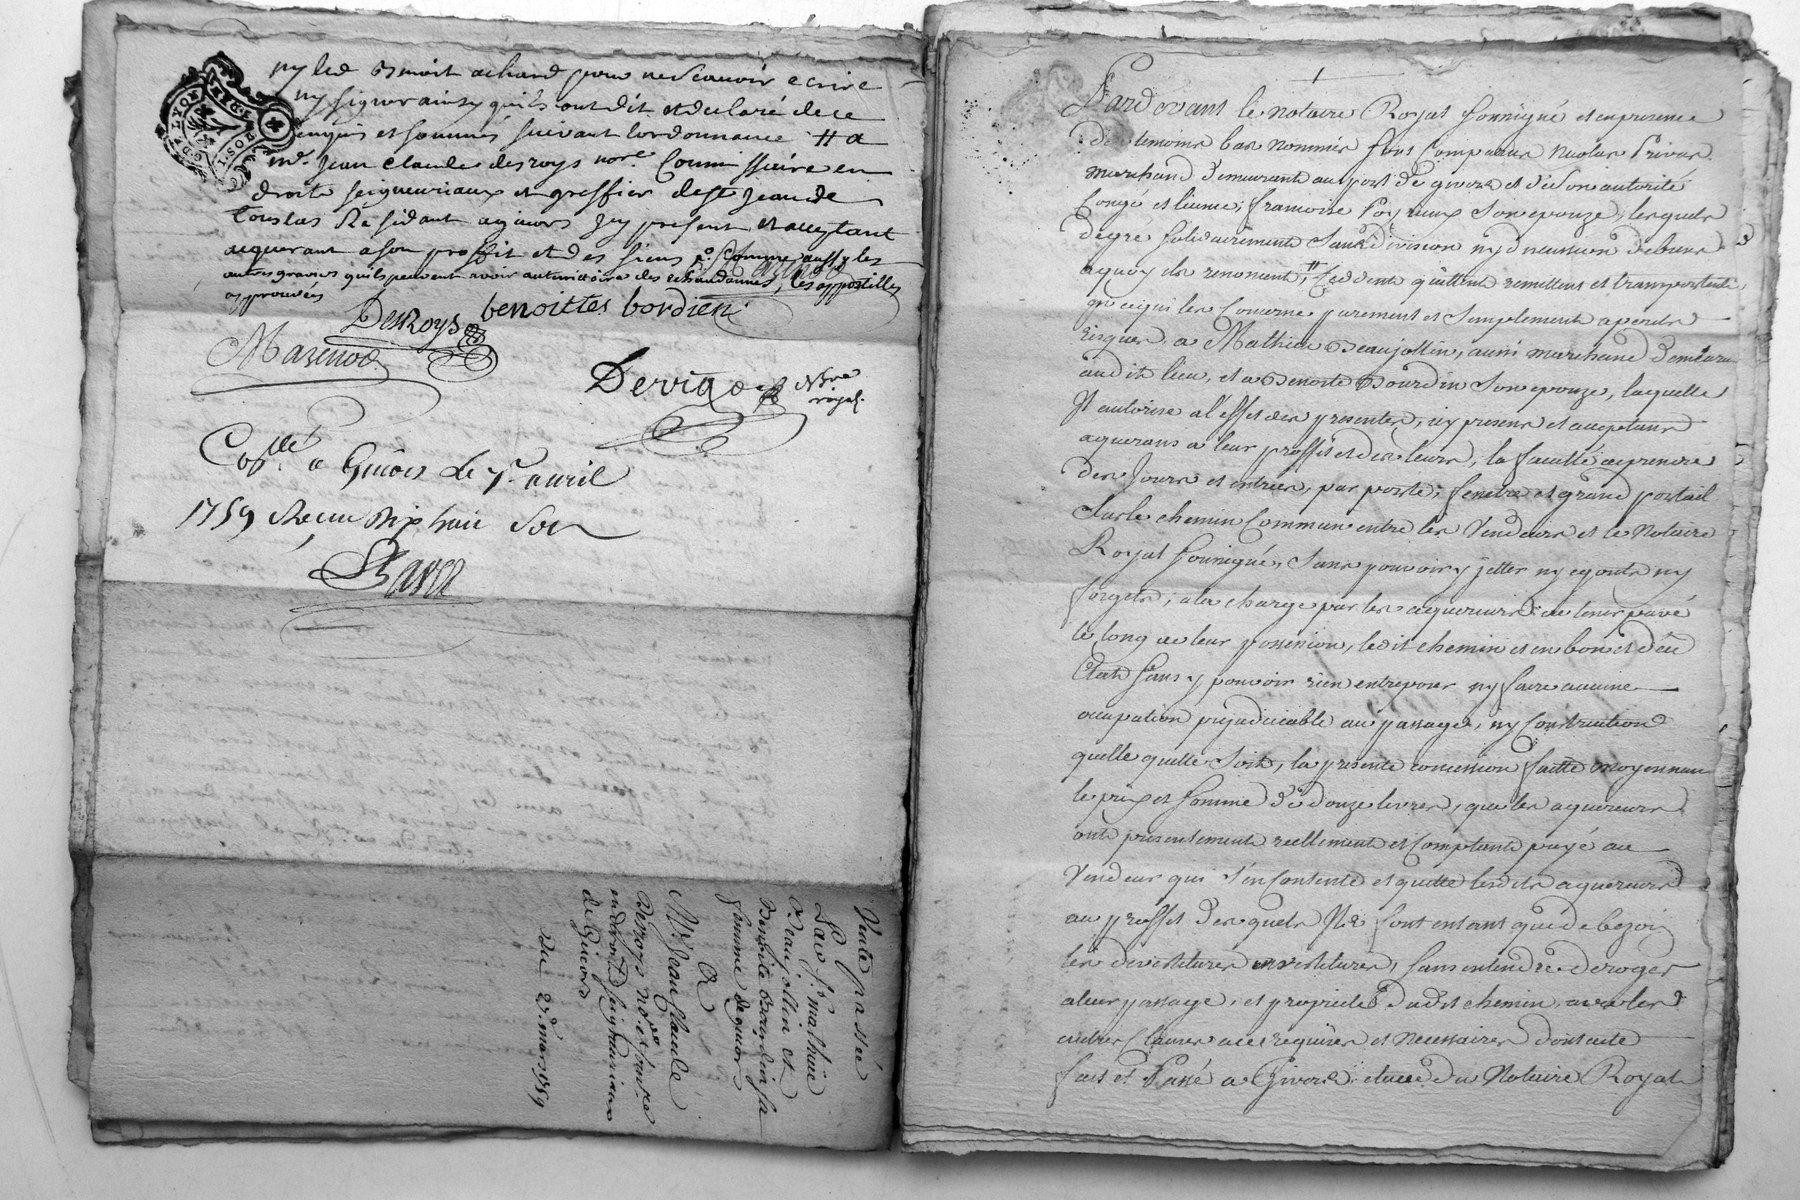 ny led Benoit achard pour ne scavoir ecrire
ny signer ainsy qu'ils ont dit et declaré de ce
enquis et sommés suivant l'ordonnance # a
me. Jean Claude desroys nore. Commissaire en
droits seigneuriaux et greffier de St Jean de
Touslas Residant a givors icy present et acceptant
acquerant a son proffit et des siens comme aussy les
autres graviers qu'ils peuvent avoir les appostilles
approuvées
DesRoys benoittes bordien
Mazenod
Dervieu Nore royal
Collé a Givors le 7e. avril
1759 Recu dix huit sols
GDE LYON
Vente passée
Par Sr. mathieu
Beaujollin et
Benoite Bourdin sa
femme de
A
Mr. Jean Claude
Desroys nore.
en droits seigneuriaux
de Givors
Du 25. mars 1759
Pardevant le notaire Royal soussigné et en presence
des temoins bas nommés furent Comparus Nicolas Privas
marchand demeurant au port de givors et de son autorité
Congé et licence, françoise son epouze, lesquels
de gré solidairement sans division ny discussion de biens
a quoy ils renoncent, # Ceddent quittent remettent et transportent
en ce qui les Concerne purement et simplement a perils
risques, a Mathieu Beaujollin, aussi marchand demeurant
audit lieu, et a Benoite Bourdin son epouze, laquelle
Il autorise a l'effet des presentes, icy present et acceptant
aquerans a leur proffit et des leurs, la faculté de prendre
des Jours et entrées, par porte, fenetre et grand portail
sur le chemin Commun entre les Vendeurs et le Notaire
Royal soussigné, sans pouvoir y jetter ny egouts ny
forgets, a la charge par les aquereurs de tenir pavé
le long de leur possession, ledit chemin et en bon et deu
Etat sans y pouvoir rien entreposer ny faire aucune
ocupation prejudiciable au passage, ny Construction
quelle quelle soit, la presente concession faitte moyennant
le prix et somme de douze livres, que les aquereurs
ont presentement reellement et Comptant payé au
Vendeur qui s'en Contente et quitte lesdits aquereurs
au proffit desquels Ils font entant que de bezoin
les devestitures investitures, sans entendre deroger
a leur passage, et proprieté dudit chemin, avec les
autres Clauses a ces requises et Necessaires dont acte
fait et Passé a Givors, etude du Notaire Royal